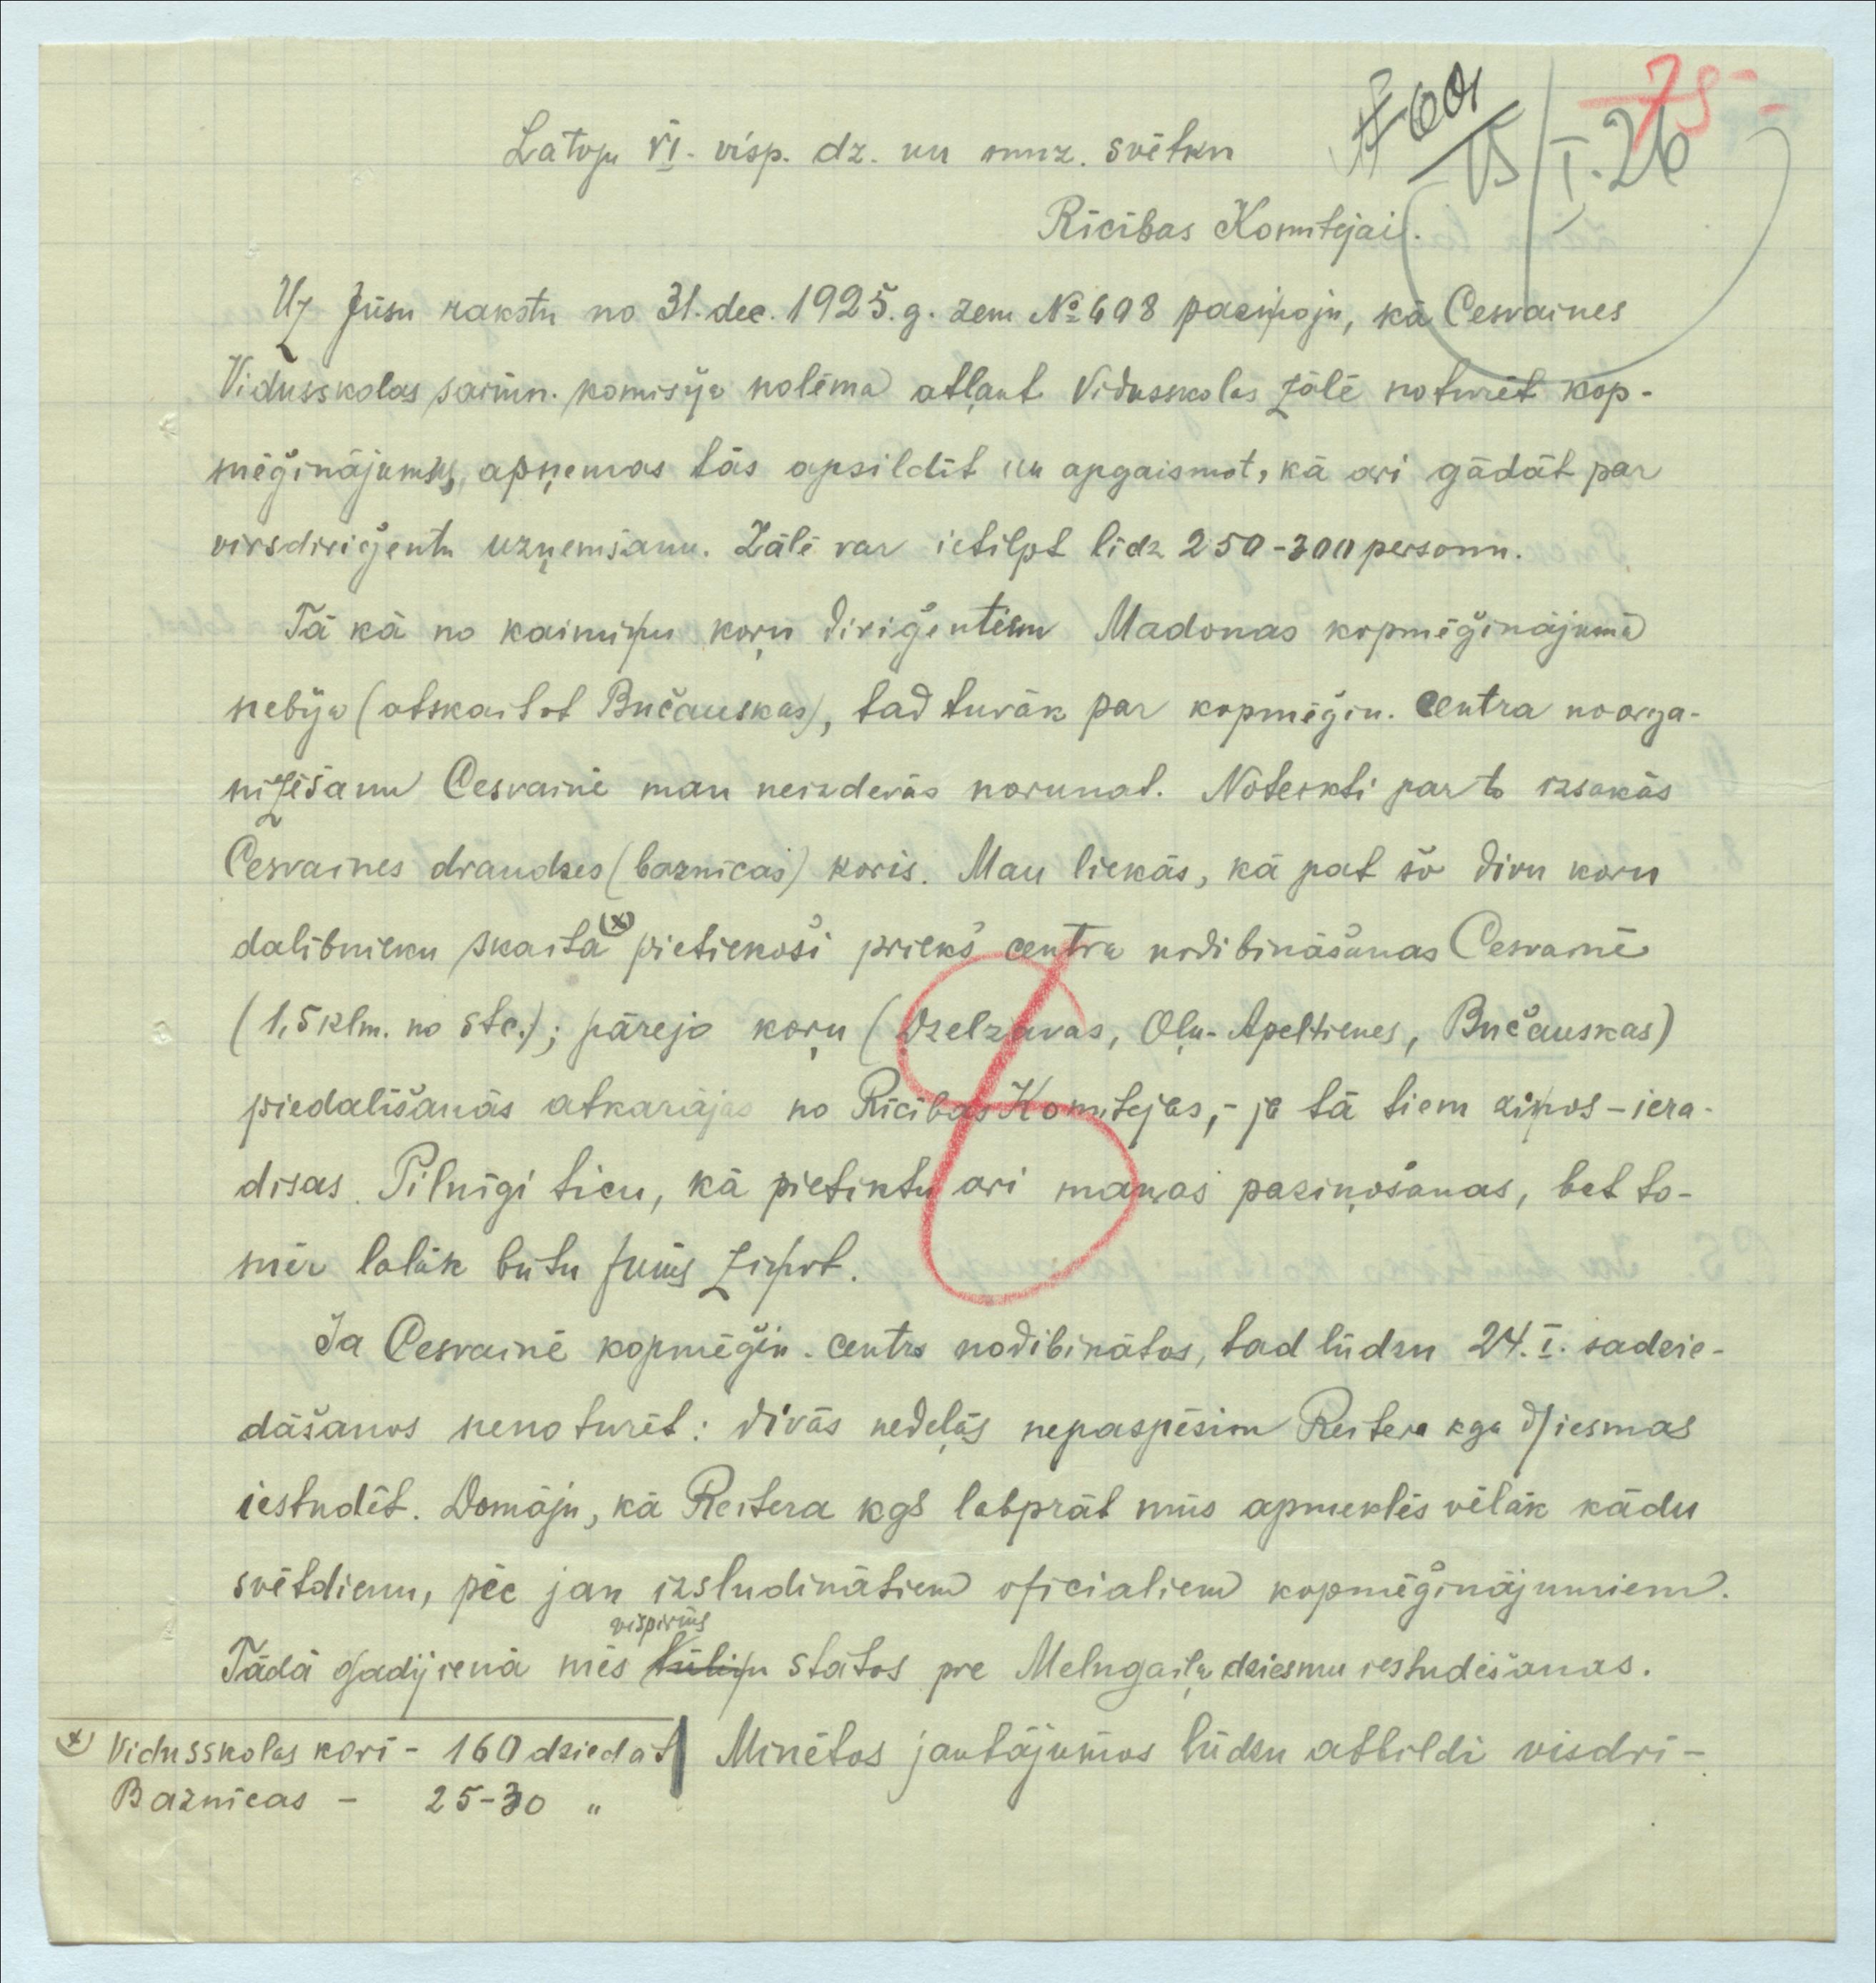 75
#601
15/I.26
Latvju VI. visp. dz. un muz. svētku
Rīcības Komitejai.
Uz Jūsu rakstu no 31. dec. 1925. g. zem № 698 paziņoju, kā Cesvaines
Vidusskolas saimn. komisija nolēma atļaut Vidusskolas zālē noturēt kop-
mēģinājumus, apņemas tās apsildīt un apgaismot, kā ari gādāt par
virsdiriģentu uzņemšanu. Zālē var ietilpt līdz 250-300 personu.
Tā kā no kaimiņu koŗu diriģentiem Madonas kopmēģinājumā
nebija (atskaitot Bučauskas), tad tuvāk par kopmēģin. centra noorga-
nizēšanu Cesvainē man neizdevās norunat. Noteikti par to izsakās
Cesvaines draudzes (baznīcas) koris. Man liekās, kā pat šo divu koru
dalībnieku skaita (x) pietiekoši priekš centra nodibināšanas Cesvainē
(1,5 klm. no stc.); pārejo koŗu (Dzelzavas, Oļu-Apeltienes, Bučauskas)
piedalīšanās atkarājas no Rīcības Komitejas, - ja tā tiem ziņos - iera-
disas. Pilnīgi ticu, kā pietiktu ari manas paziņošanas, bet to-
mēr labāk būtu Jums ziņot.
Ja Cesvainē kopmēģin. centrs nodibinātos, tad lūdzu 24. I. sadzie-
dāšanos nenoturēt: divās nedēļās nepaspēsim Reitera kga dziesmas
iestudēt. Domāju, kā Reitera kgs labprāt mūs apmeklēs vēlāk kādu
svētdienu, pēc jau izsludinātiem oficialiem kopmēģinājumiem.
vispirms
Tādā gadijienā mēs tūliņ statos pre Melngaiļa dziesmu iestudēšanas.
(x) Vidusskolas korī - 160 dziedat
Baznīcas - 25-30 "
Minētos jautājumos lūdzu atbildi visdrī-